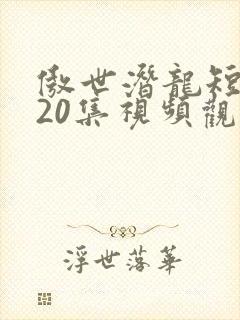 傲世潛龍短
20集視頻觀
浮世落華